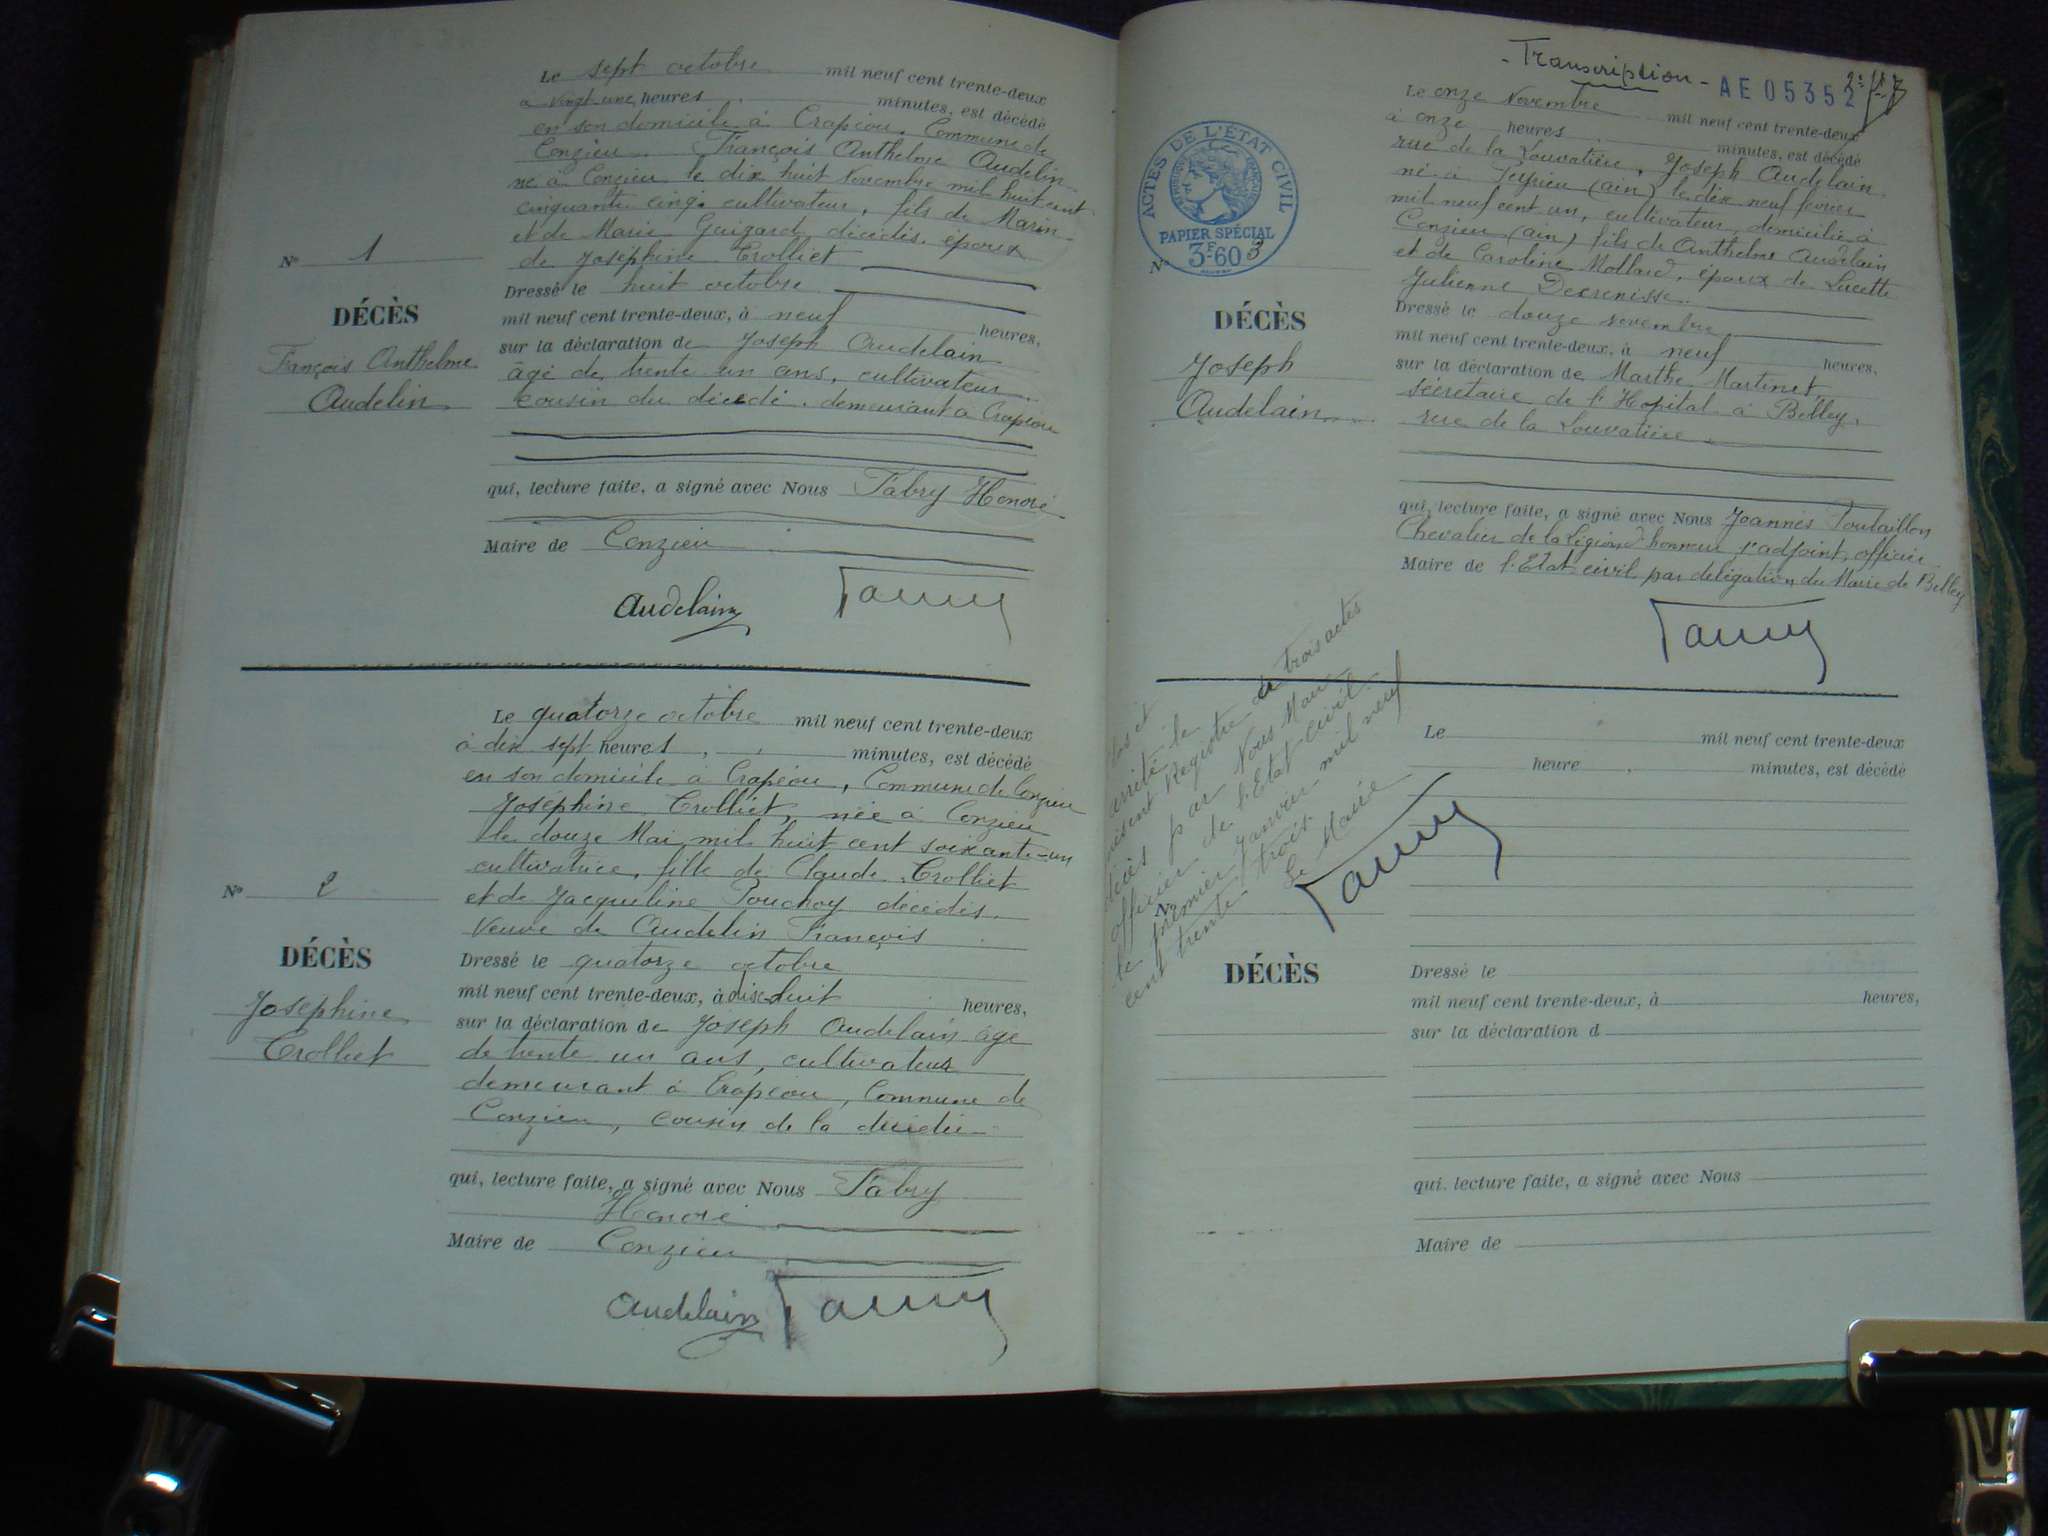 Le sept octobre mil neuf cent trente-deux
à vingt une heures minutes, est décédé
en son domicile à Crapéou, Commune de
Conzieu François Anthelme Audelin
né à Conzieu le dix huit Novembre mil huit cent
cinquante cinq. cultivateur, fils de Marin
et de Marie Guigard décédés. époux
de Joséphine Trolliet
Nº 1
DÉCÈS
François Anthelme
Audelin
Dressé le huit octobre
mil neuf cent trente-deux, à neuf heures,
sur la déclaration de Joseph Audelain
âgé de trente un ans, cultivateur
cousin du décédé. demeurant à Crapéou
qui, lecture faite, a signé avec Nous Fabry Honoré
Maire de Conzieu
Audelain
Le quatorze octobre mil neuf cent trente-deux
à dix sept heures minutes, est décédé
en son domicile à Crapéou, Commune de Conzieu
Joséphine Trolliet, née à Conzieu
le douze Mai mil huit cent soixante-un
cultivatrice, fille de Claude Trolliet
et de Jacqueline Pouchoy décédés.
Veuve de Audelin François
Nº 2
DÉCÈS
Joséphine
Trolliet
Dressé le quatorze octobre
mil neuf cent trente-deux, à dix-huit heures,
sur la déclaration de Joseph Audelain âgé
de trente un ans, cultivateur
demeurant à Crapéou, Commune de
Conzieu, cousin de la décédée
qui, lecture faite, a signé avec Nous Fabry
Honoré
Maire de Conzieu
Audelain
- Transcription - AE 05352
ACTES DE L'ÉTAT CIVIL
PAPIER SPÉCIAL
3F60
Le onze Novembre mil neuf cent trente-deux
à onze heures minutes, est décédé
rue de la Louvatière, Joseph Audelain
né à Peyrieu (ain) le dix neuf février
mil neuf cent un, cultivateur, domicilié à
Conzieu (ain) fils de Anthelme Audelain
et de Caroline Mollard, époux de Lucette
Julienne
Nº 3
DÉCÈS
Joseph
Audelain
Dressé le douze novembre
mil neuf cent trente-deux, à neuf heures,
sur la déclaration de Marthe Martinet,
sécretaire de l'Hopital à Belley,
rue de la Louvatière
qui, lecture faite, a signé avec Nous Joannès
Chevalier de la Légion d'honneur 1er adjoint, officier
Maire de l'Etat civil par délégation du Maire de Belley
Clos et
arrêté le
présent Registre de trois actes
décès par Nous Maire
officier de l'Etat civil
le premier Janvier mil neuf
cent trente trois.
Le Maire
Le mil neuf cent trente-deux
heure minutes, est décédé
Nº
DÉCÈS
Dressé le
mil neuf cent trente-deux, à heures,
sur la déclaration d
qui, lecture faite, a signé avec Nous
Maire de